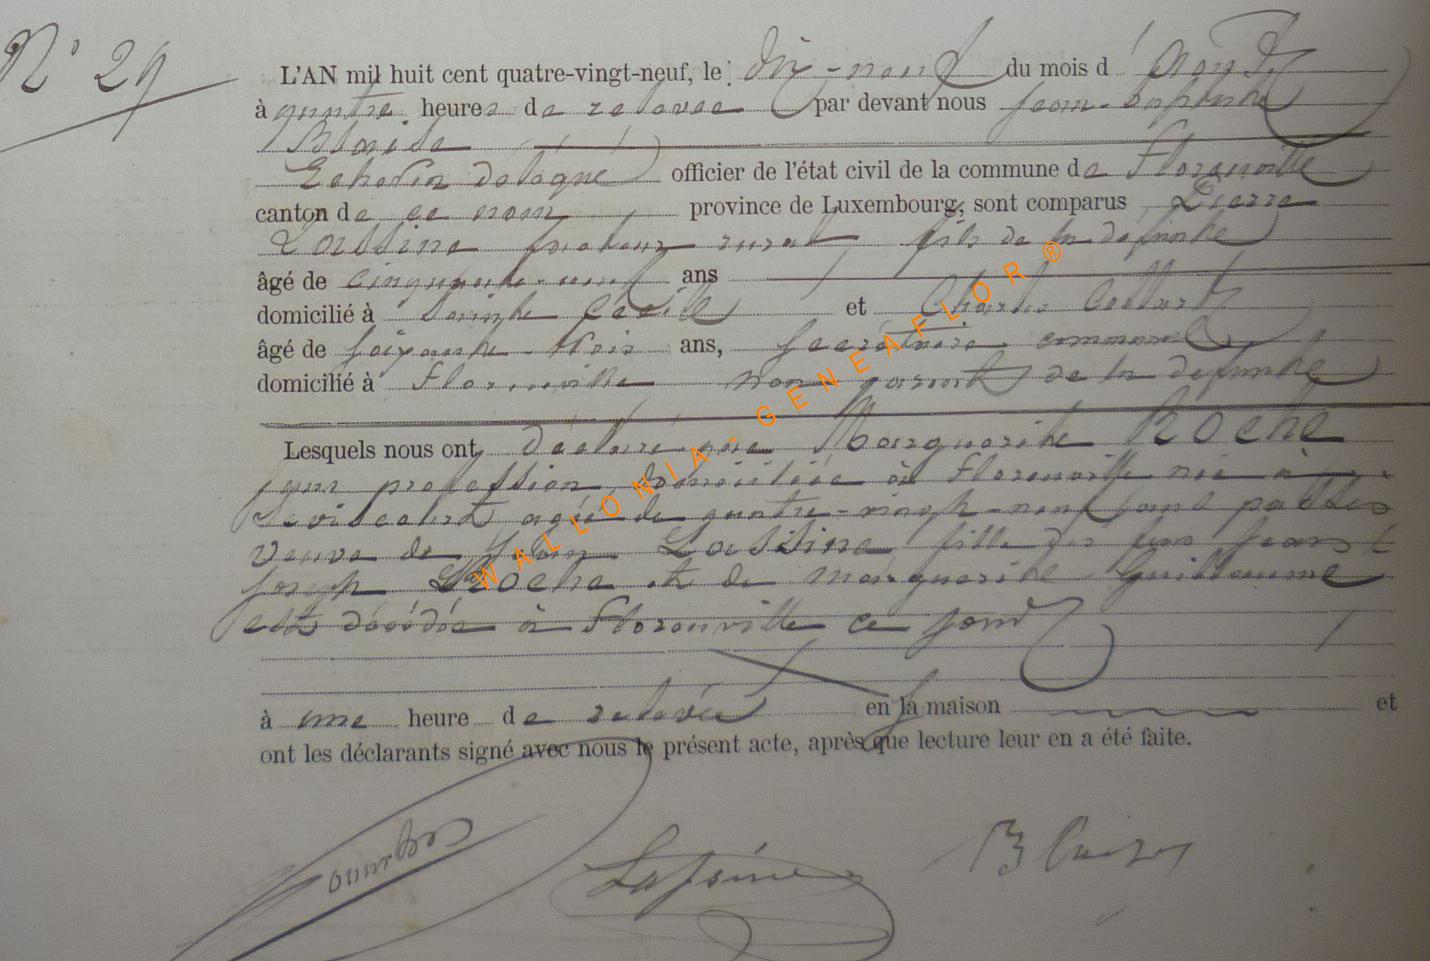 N° 29
L'AN mil huit cent quatre-vingt-neuf, le dix-neuf du mois d'Août
à quatre heures de relevée par devant nous Jean-Baptiste
Blaise
Echevin délégué officier de l'état civil de la commune de Florenville
canton de ce nom province de Luxembourg, sont comparus Pierre
Lassine facteur rural fils de la défunte
âgé de cinquante-neuf ans
domicilié à Sainte Cécile et Charles
âgé de soixante-trois ans, secrétaire communal
domicilié à Florenville non parent de la défunte
Lesquels nous ont déclaré que Marguerite Roche
sans profession, domiciliée à Florenville née à
agée de quatre-vingt-neuf ans passés
veuve de Lassine fille des feus Jean
Joseph Roche et de Marguerite Guillaume
est décédée à Florenville ce jour
à une heure de relevée en la maison et
ont les déclarants signé avec nous le présent acte, après que lecture leur en a été faite.
Lassine Blaise
WALLONIA-GENEAFLOR ®